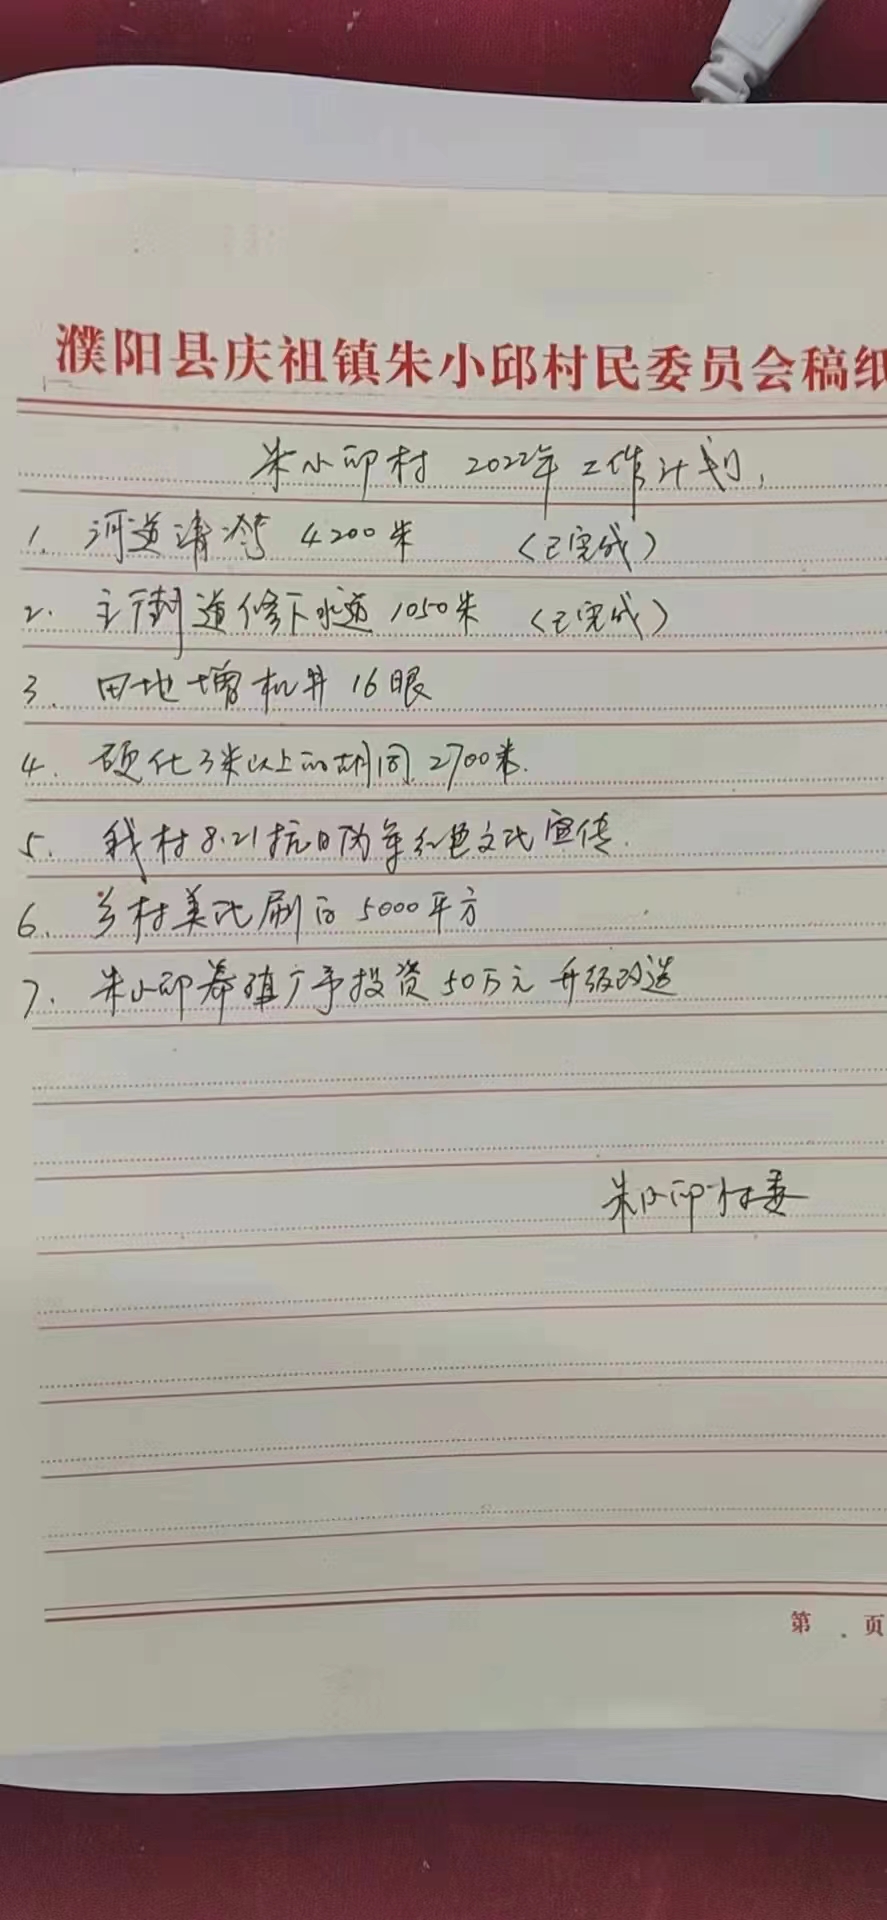 濮阳县庆祖镇朱小邱村民委员会稿纸
朱小邱村 2022年工作计划.
1. 河道清淤 4200米 (已完成)
2. 主街道修下水道 1050米 (已完成)
3. 田地增机井 16眼
4. 硬化3米以上的胡同 2700米.
5. 我村8.21抗日伪军红色文化宣传.
6. 乡村美化刷白 5000平方
7. 朱小邱养殖厂予投资50万元 升级改造
朱小邱村委
第 页